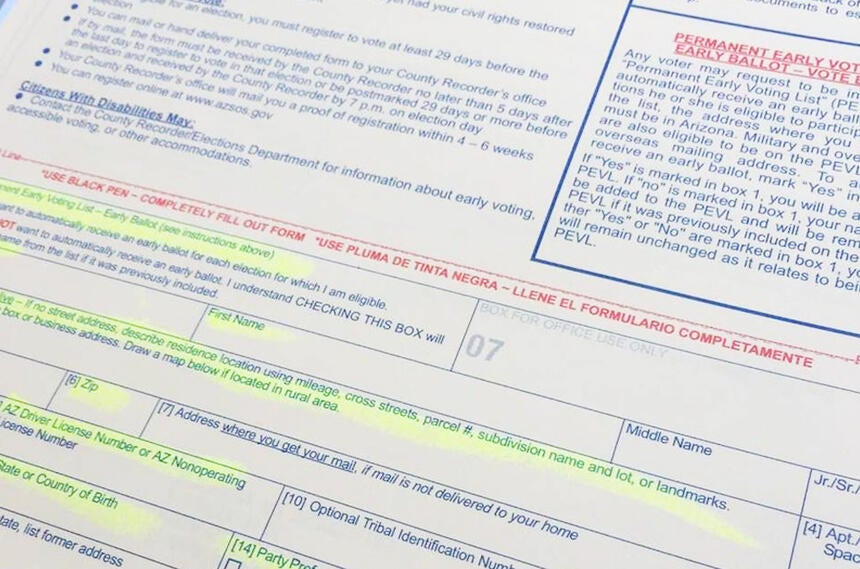 yet had your civil rights restored
eligible for an election, you must register to vote at least 29 days before the
election
You can mail or hand deliver your completed form to your County Recorder's office
If by mail, the form must be received by the County Recorder no later than 5 days after
the last day to register to vote in that election or be postmarked 29 days or more before
an election and received by the County Recorder by 7 p.m. on election day
Your County Recorder's office will mail you a proof of registration within 4 – 6 weeks
You can register online at www.azsos.gov
Citizens With Disabilities May:
Contact the County Recorder/Elections Department for information about early voting,
accessible voting, or other accommodations.
PERMANENT EARLY
EARLY BALLOT – VOTE
Any voter may request to be
"Permanent Early Voting List"
automatically receive an early
he or she is eligible to
the list, the address where you
must be in Arizona. Military and
are also eligible to be on the PEVL
overseas mailing address. To
receive an early ballot, mark "Yes" in
If "Yes" is marked in box 1, you will be
PEVL. If "no" is marked in box 1, your
be added to the PEVL and will be
PEVL if it was previously included on the
"Yes" or "No" are marked in box 1,
will remain unchanged as it relates to
PEVL.
Line
"USE BLACK PEN ~ COMPLETELY FILL OUT FORM "USE PLUMA DE TINTA NEGRA ~ LLENE EL FORMULARIO COMPLETAMENTE
Early Voting List – Early Ballot (see instructions above)
want to automatically receive an early ballot for each election for which I am eligible.
want to automatically receive an early ballot. I understand CHECKING THIS BOX will
from the list if it was previously included.
First Name
BOX FOR OFFICE USE ONLY
07
Middle Name
Jr./Sr./
– If no street address, describe residence location using mileage, cross streets, parcel #, subdivision name and lot, or landmarks.
box or business address. Draw a map below if located in rural area.
[4] Apt./
[6] Zip
[7] Address where you get your mail, if mail is not delivered to your home
AZ Driver License Number or AZ Nonoperating
License Number
[10] Optional Tribal Identification
State or Country of Birth
[14] Party
list former address